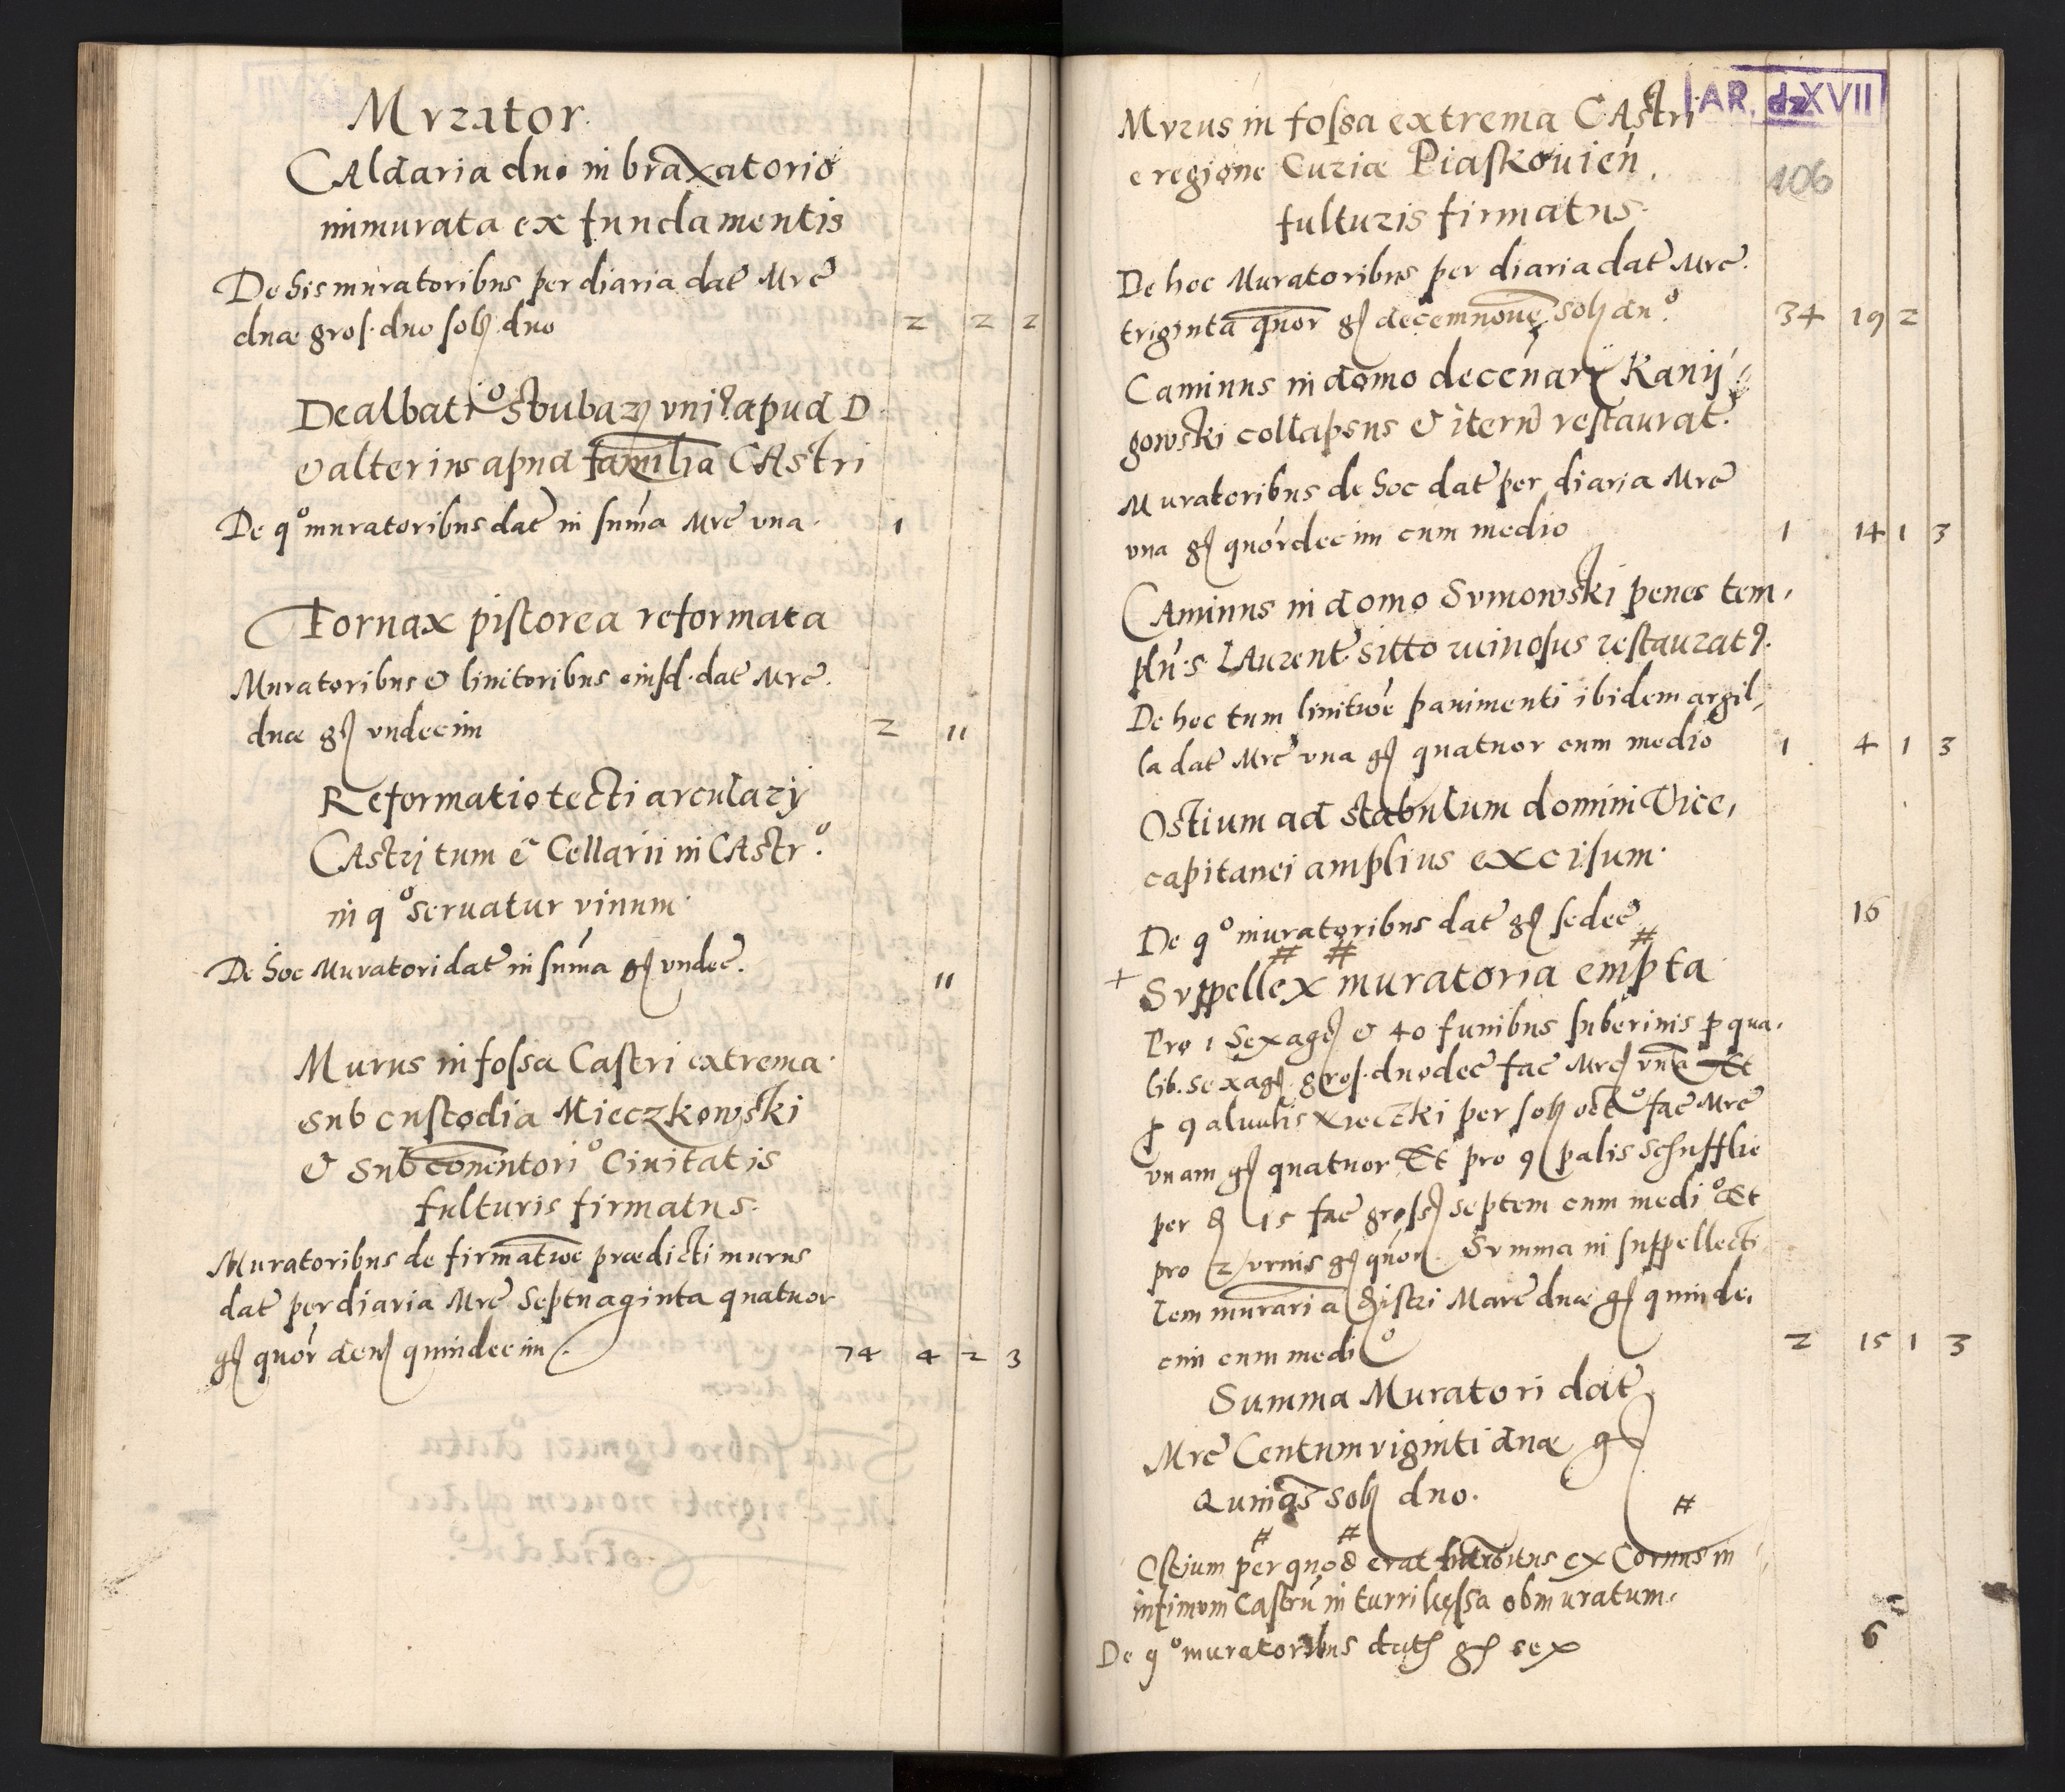 Murator.
CAldaria duo in braxatorio
inmurata ex fundamentis
De his muratoribus per diaria dat Mrc
duæ gros. duo sol duo 2 2 2
Dealbatio stubar uni9 apud D.
& alterius apud familia CAstri
De qo muratoribus dat in summa Mrc una. 1
Fornax pistorea reformata
Muratoribus & linitoribus eiusd. dat Mrc.
duæ gs undecim 2 11
Reformatio tecti arcularij
CAstri tum et Cellarii in CAstro.
in qo seruatur vinum.
De hoc Muratori dat in summa gs undec. 11
Murus in fossa Castri extrema.
sub custodia Mieczkowski
& Sub Civitatis
fulturis firmatus.
Muratoribus de firmatioe prædicti murus
dat per diaria Mrc Septuaginta quatuor
gs quor den quindecim 74 4 2 3
AR. dz XVII
Murus in fossa extrema CAstri
e regione Curiæ Piaskouien.
106
fulturis firmatus.
De hoc Muratoribus per diaria dat Mrc.
triginta quor gs decemnoue sol duo. 34 19 2
Caminus in domo decenarij Kanij
gowski collapsus & iteru restaurat.
Muratoribus de hoc dat per diaria Mrc
una gs quordecim cum medio 1 14 1 3
CAminus in domo Sumowski penes tem,
plu. S. LAurent. sitto ruinosus restaurat9.
De hoc tum linitioe pauimenti ibidem argil,
la dat Mrc una gs quatuor cum medio 1 4 1 3
Ostium ad stabulum domini Vice,
capitanei amplius excisum.
De qo muratoribus dat gs sedec 16
+ Suppellex muratoria empta
Pro 1 Sexag & 40 funibus suberinis p qua.
lib. sexag. gros. duodec fac Mrc una Et
p 9 aluulis per sol octo fac Mrc
unam gs quatuor Et pro 9 palis schufflie
per 15 fac gros septem cum medio Et
pro 2 urnis gs quor. Summa in suppellecti
lem muraria Marc duæ gs quinde,
cim cum medio 2 15 1 3
Summa Muratori dat
Mrc Centum viginti duæ gs
Quinqs sol duo.
Ostium per quod erat introitus ex Cornus in
infimum Castru in turri obmuratum.
De qo muratoribus dat gs sex 6